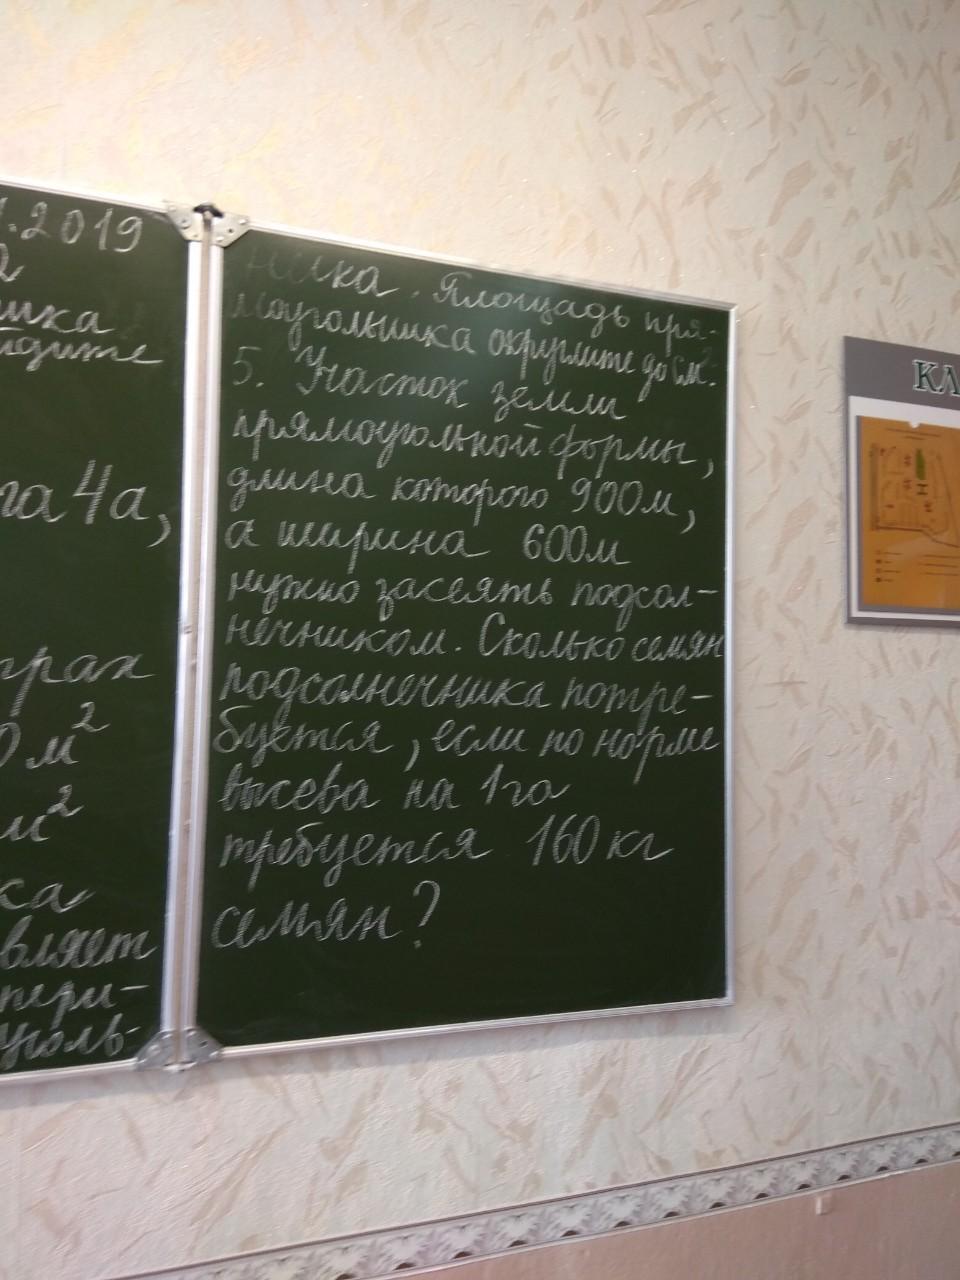 .2019
шка
йдите
га 4а,
грах
0 м²
м²
ка
вляет
пери-
уголь-
ника. Площадь пря-
моугольника округлите до см².
5. Участок земли
прямоугольной формы,
длина которого 900м,
а ширина 600м
нужно засеять подсол-
нечником. Сколько семян
подсолнечника потре-
буется, если по норме
высева на 1га
требуется 160 кг
семян?
КЛ